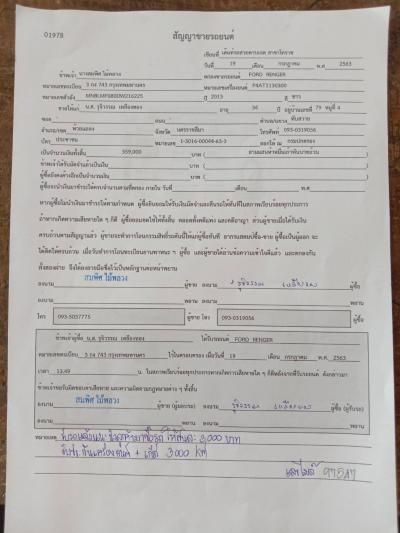 01978
สัญญาขายรถยนต์
เขียนที่ เต็นท์รถสวยพานิช สาขาโคราช
วันที่ 19 เดือน กรกฎาคม พ.ศ. 2563
ข้าพเจ้า นางสมพิศ ไม้พลวง ตกลงขายรถยนต์ FORD RENGER
หมายเลขทะเบียน 3 กง 743 กรุงเทพมหานคร หมายเลขเครื่องยนต์ P4AT1130300
หมายเลขตัวถัง MNBLMFF80DW216225 ปี 2013 สี ขาว
ขายให้แก่ น.ส. รุจิวรรณ เหลืองทอง อายุ 34 ปี อยู่บ้านเลขที่ 79 หมู่ที่ 4
ซอย ถนน ตำบล/แขวง ทับสวาย
อำเภอ/เขต ห้วยแถลง จังหวัด นครราชสีมา โทรศัพท์ 093-0319056
บัตร ประชาชน หมายเลข 1-3016-00044-63-3 ออกให้ ณ กรมปกครอง
เป็นจำนวนเงินทั้งสิ้น 359,000 บาท ( สามแสนห้าหมื่นเก้าพันบาทถ้วน )
ข้าพเจ้าได้รับมัดจำแล้วเป็นเงิน บาท ( )
ผู้ซื้อยังคงค้างอีกเป็นจำนวนเงิน บาท ( )
ผู้ซื้อจะนำเงินมาชำระให้ครบจำนวนตามที่ตกลง ภายใน วันที่ เดือน พ.ศ.
หากผู้ซื้อไม่นำเงินมาชำระให้ตามกำหนด ผู้ซื้อยินยอมให้ริบเงินมัดจำและคืนรถให้ทันทีในสภาพเรียบร้อยทุกประการ
ถ้าหากเกิดความเสียหายใด ๆ ก็ดี ผู้ซื้อยอมชดใช้ให้ทั้งสิ้น ตลอดทั้งคดีแพ่ง และคดีอาญา ส่วนผู้ขายเมื่อได้รับเงิน
ครบถ้วนตามสัญญาแล้ว ผู้ขายจะทำการโอนกรรมสิทธิ์รถคันนี้ให้แก่ผู้ซื้อทันที อากรแสตมป์ซื้อ-ขาย ผู้ซื้อเป็นผู้ออก จะ
ได้คิดให้ครบถ้วน เมื่อวันทำการโอนทะเบียนยานพาหนะ ฯ ผู้ซื้อ และผู้ขายได้อ่านข้อความเข้าใจดีแล้ว และตกลงกัน
ทั้งสองฝ่าย จึงได้ลงลายมือชื่อไว้เป็นหลักฐานต่อหน้าพยาน
ลงนาม สมพิศ ไม้พลวง ผู้ขาย ลงนาม รุจิวรรณ เหลืองทอง ผู้ซื้อ
ลงนาม พยาน ลงนาม พยาน
โทร 093-5037775 ผู้ขาย โทร 093-0319056 ผู้ซื้อ
ข้าพเจ้าผู้ซื้อ น.ส. รุจิวรรณ เหลืองทอง ได้รับรถยนต์ FORD RENGER
หมายเลขทะเบียน 3 กง 743 กรุงเทพมหานคร ไว้ในครอบครอง เมื่อวันที่ 19 เดือน กรกฎาคม พ.ศ. 2563
เวลา 13.49 น.
ข้าพเจ้าขอรับผิดชอบความเสียหาย และความผิดตามกฎหมายต่าง ๆ ทั้งสิ้น
ลงนาม สมพิศ ไม้พลวง ผู้ขาย (ผู้มอบรถ) ลงนาม รุจิวรรณ เหลืองทอง ผู้ซื้อ (ผู้รับรถ)
ลงนาม พยาน ลงนาม พยาน
หมายเหตุ 3,000 บาท
รับประกันเครื่องยนต์ + เกียร์ 3000 KM
เลขไมล์ 97547